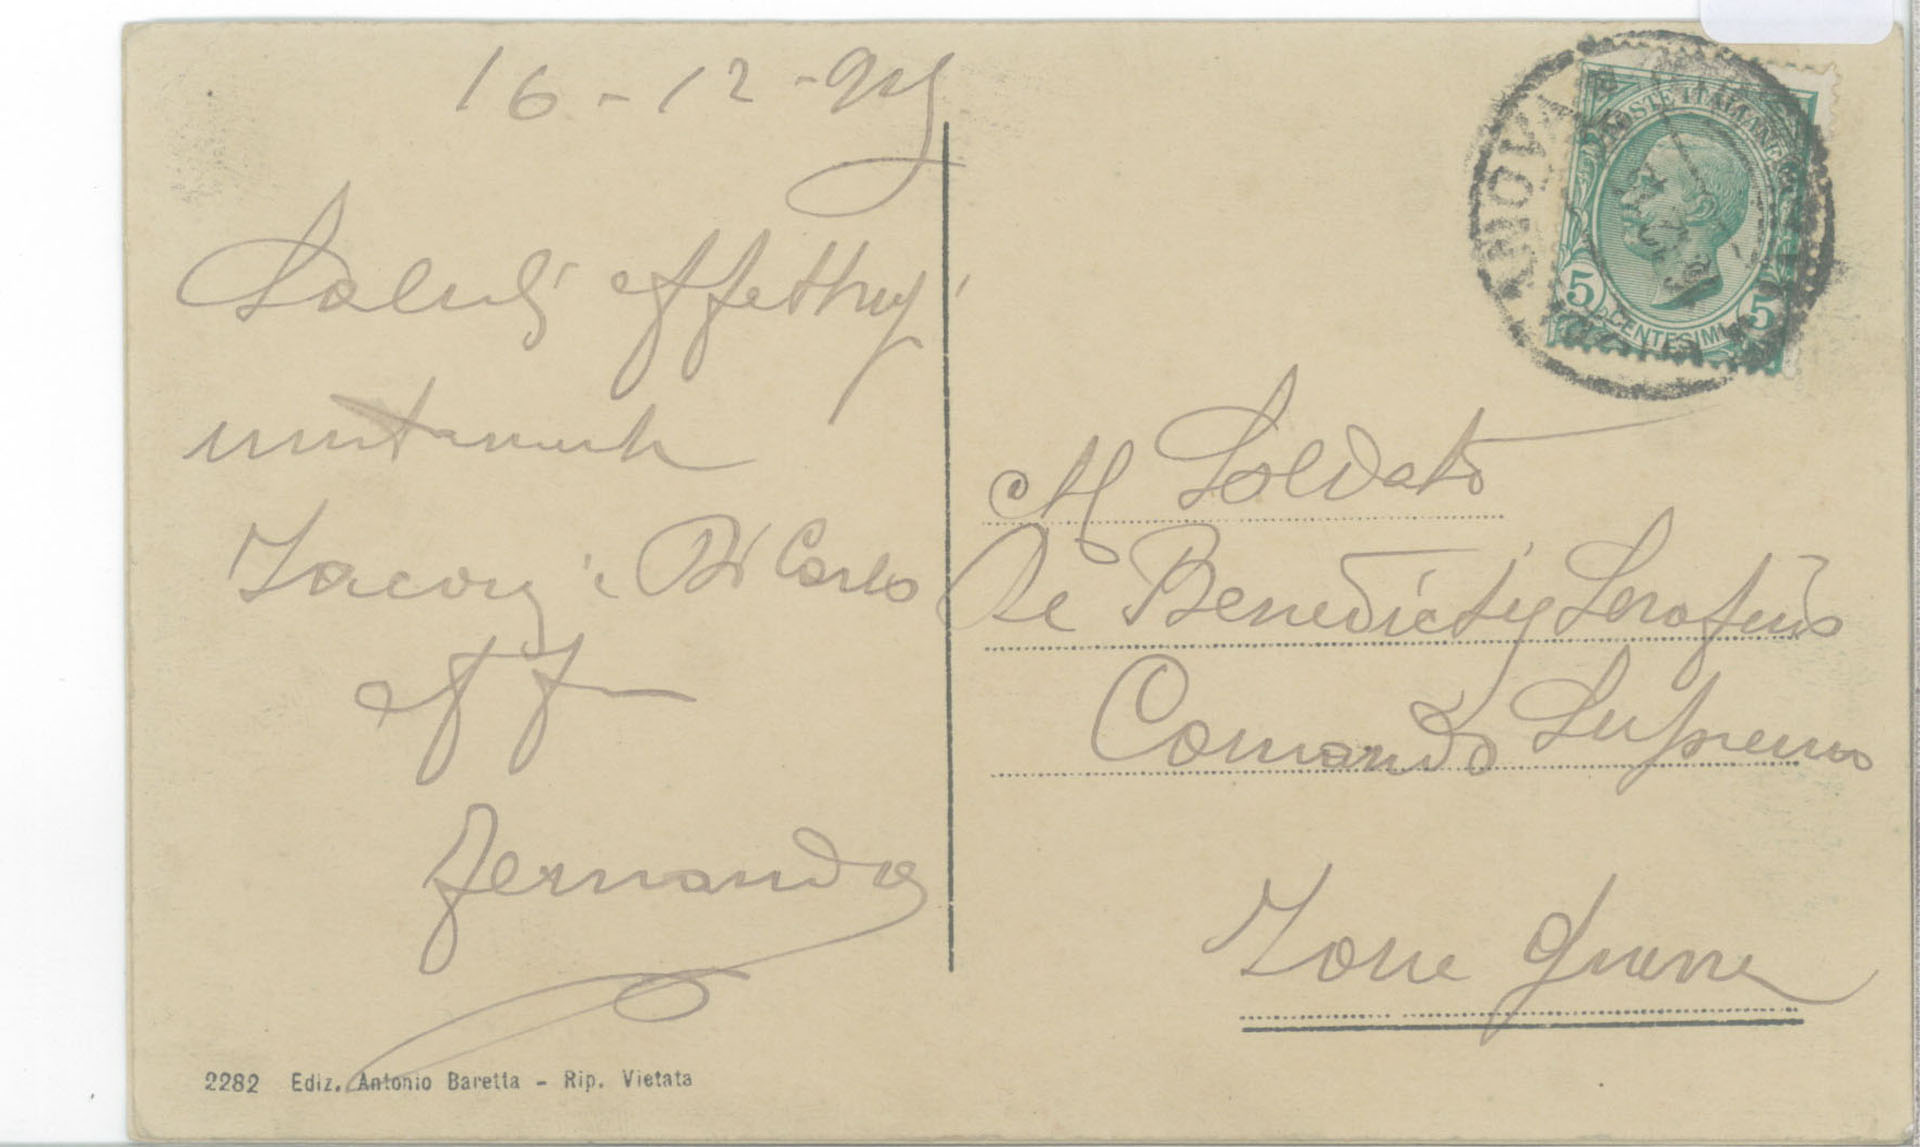 16-12-915
Saluti affettuosi
unitamente
Iacovi e Di Carlo
aff
Fernando
2282 Ediz. Antonio Baretta - Rip. Vietata
POSTE ITALIANE
5 5
CENTESIMI
Al Soldato
De Benedictis Serafino
Comando Supremo
Zona guerra